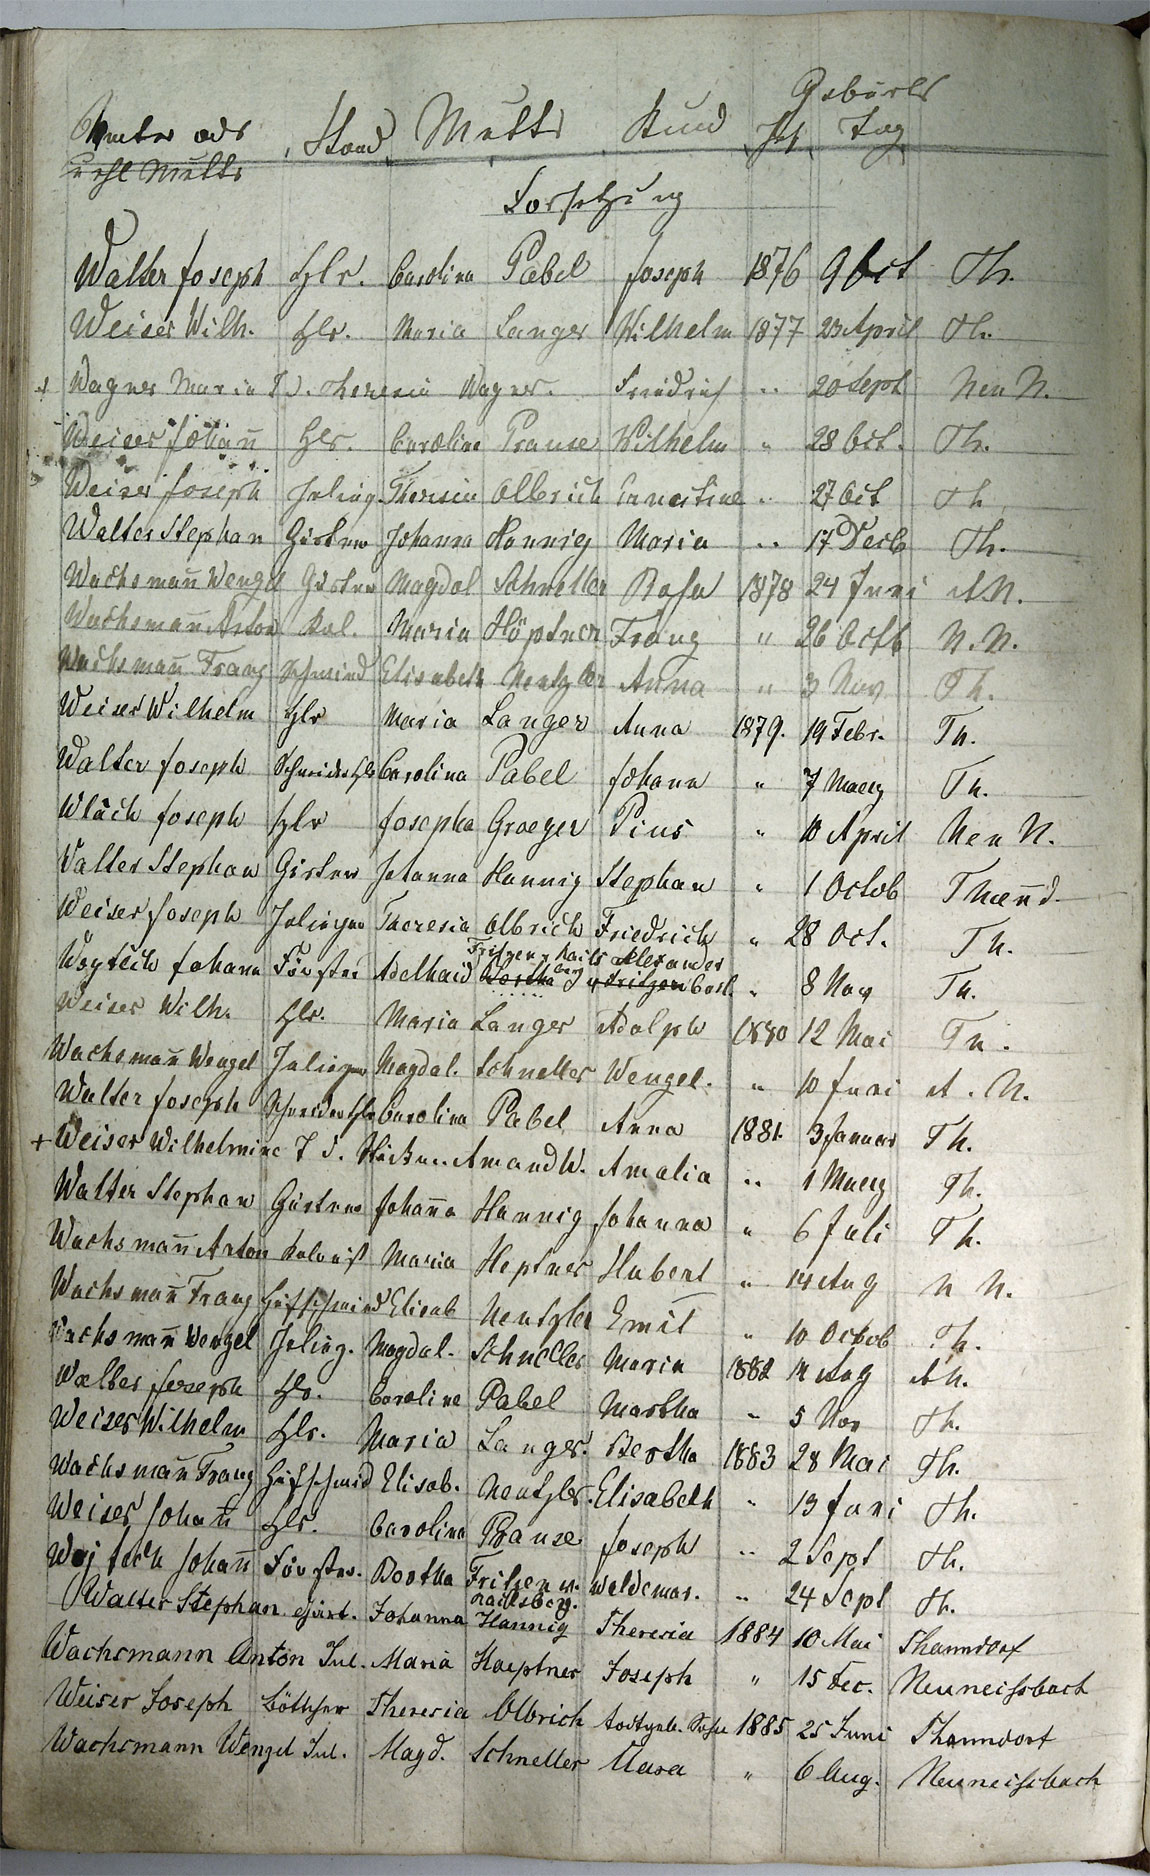 Geburts
Vater ods Stand Mutts Kind Jhr Tag
uehl Mutts
Forsetzung
Walter Joseph Hlr. Carolina Pabel Joseph 1876 9 Oct Th.
Weiser Wilh. Hlr. Maria Langer Wilhelm 1877 23 April Th.
+ Wagner Maria T. d. Theresia Wagner. Friedrich " 20 Sept Neu N.
Weiser Johan̄ Hlr. Caroline Prause Wilhelm " 28 Oct. Th.
Weiser Joseph Inlieg. Theresia Olbrich Ernestine " 27 Oct Th
Walter Stephan Gärtner Johanna Hannig Maria " 17 Decb Th.
Wachsman̄ Wenzel Gärtner Magdal Schneller Rosa 1878 24 Juni A N.
Wachsman̄ Anton Kol. Maria Höptner Franz " 26 Octb N. N.
Wachsman̄ Franz Schmied Elisabeth Nentzler Anna " 3 Nov Th.
Weiser Wilhelm Hlr Maria Langer Anna 1879. 19 Febr. Th.
Walter Joseph Schneider Hlr Carolina Pabel Johann " 7 Maerz Th.
Wlach Joseph Hlr Josepha Groeger Pius " 10 April Neu N.
Walter Stephan Gärtner Johanna Hannig Stephan " 1 Octob Than̄d.
Weiser Joseph Inlieger Theresia Olbrich Friedrich " 28 Oct. Th.
Alexander
Woytech Johann Förster Adelhaid Carl. " 8 Nov Th.
Weiser Wilh. Hlr. Maria Langer Adolph 1880 12 Mai Th.
Wachsman̄ Wenzel Inlieger Magdal. Schneller Wenzel. " 10 Juni A. N.
Walter Joseph Schneider Hlr Carolina Pabel Anna 1881. 3 Januar Th.
+ Weiser Wilhelmine T d. Amand W. Amalia " 1 Maerz Th.
Walter Stephan Gärtner Johan̄a Hannig Johanna " 6 Juli Th.
Wachsman̄ Anton Kolonist Maria Heptner Hubert " 14 Aug N N.
Wachsman̄ Franz Hufschmied Elisab Nentzler Emil " 10 Octob Th.
Wachsman̄ Wenzel Inlieg. Magdal. Schneller Maria 1882 14 Aug A N.
Walter Joseph Hlr. Caroline Pabel Martha " 5 Nov Th.
Weiser Wilhelm Hlr. Maria Langer. Bertha 1883 28 Mai Th.
Wachsman̄ Franz Hufschmied Elisab. Nentzler. Elisabeth " 13 Juni Th.
Weiser Johan̄ Hlr. Carolina Prause Joseph " 2 Sept Th.
Woitech Johan̄ Förster. Bertha Fritzen u. Waldemar. " 24 Sept Th.
Walter Stephan Gärt. Johanna Hannig Theresia 1884 10 Mai Thanndorf
Wachsmann Anton Inl. Maria Haeptner Joseph " 15 Dec. Neuneissbach
Weiser Joseph Böttcher Theresia Olbrich todtgeb. Sohn 1885 25 Juni Thanndorf
Wachsmann Wenzel Inl. Magd. Schneller Clara " 6 Aug. Neuneissbach